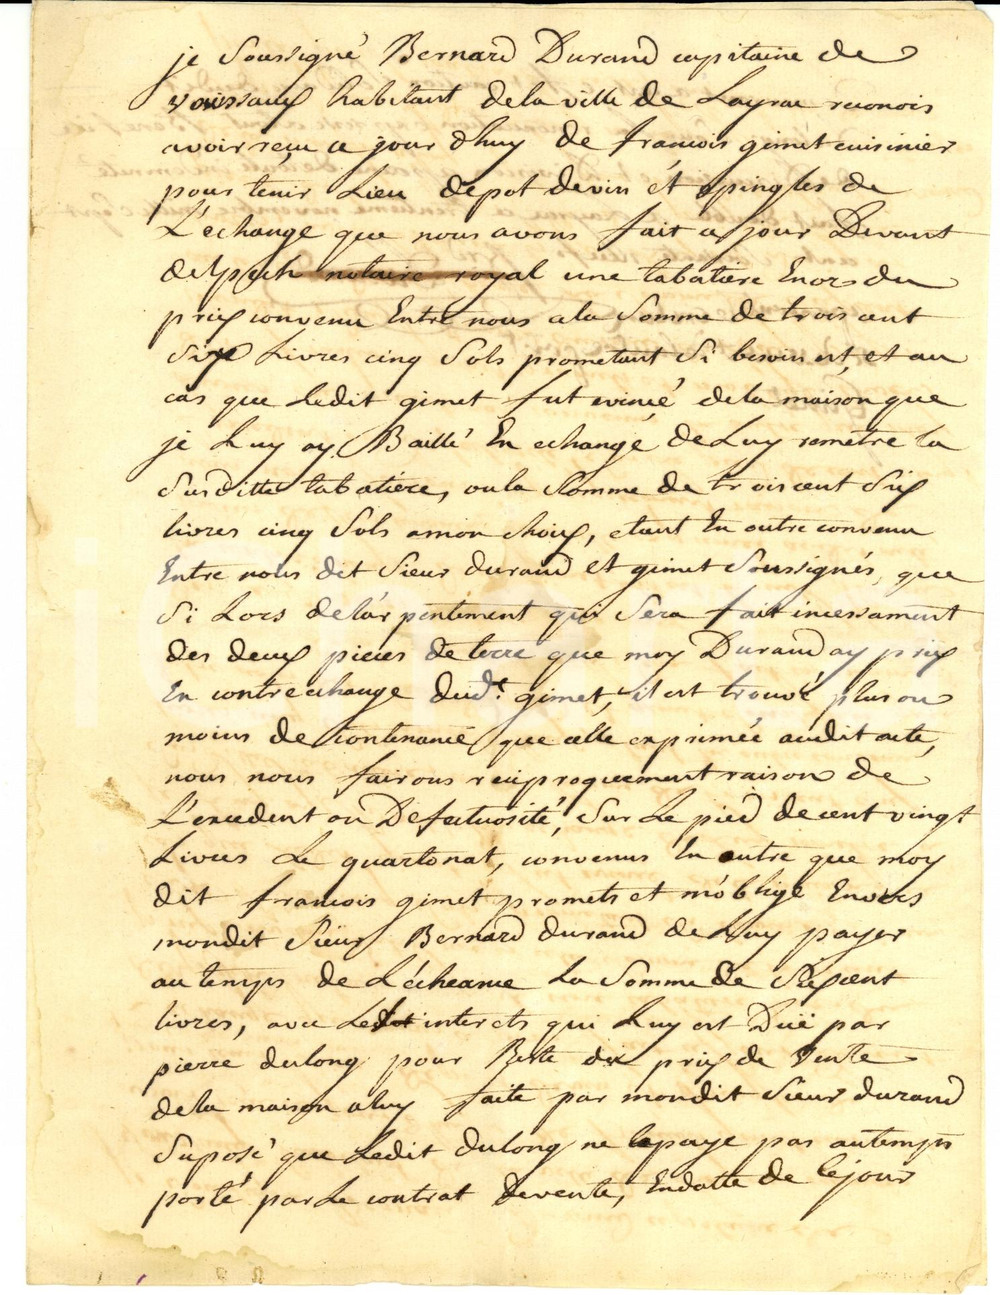 je Soussigné Bernard Durand capitaine de
vaisseaux habitant de la ville de Layrac reconois
avoir reçu ce jour dhuy de francois gimet cuisinier
pour tenir Lieu depot de vin ét épingles de
L'échange que nous avons fait ce jour Devant
delpech notaire royal une tabatière En or du
prix convenu Entre nous a la Somme de trois cent
Six Livres cinq Sols prometant Si besoin est, et au
cas que Ledit gimet fut evincé de la maison que
je Luy ay Baillé En echange de Luy remetre la
Susditte tabatière, ou la Somme de trois cent Six
livres cinq Sols a mon choix, etant En outre convenu
Entre nous dit Sieur durand et gimet Soussignés, que
Si Lors de l'arpentement qui Sera fait incessament
des deux pieces de terre que moy Durand ay prix
En contrechange dud.t gimet, il est trouvé plus ou
moins de Contenance que celle exprimée audit acte,
nous nous fairons reciproquement raison de
L'excedent ou Defectuosité, Sur Le pied de cent vingt
Livres Le quartonat, convenus En outre que moy
dit francois gimet promets et m'oblige Envers
mondit Sieur Bernard durand de Luy payer
au temps de L'écheance La Somme de Six cent
livres, avec Les interets qui Luy est Düe par
pierre dulong pour Reste du prix de Vente
de la maison a luy faite par mondit Sieur durand
Suposé que Ledit dulong ne le paye pas au temps
porté par Le contrat de vente, En datte de ce jour